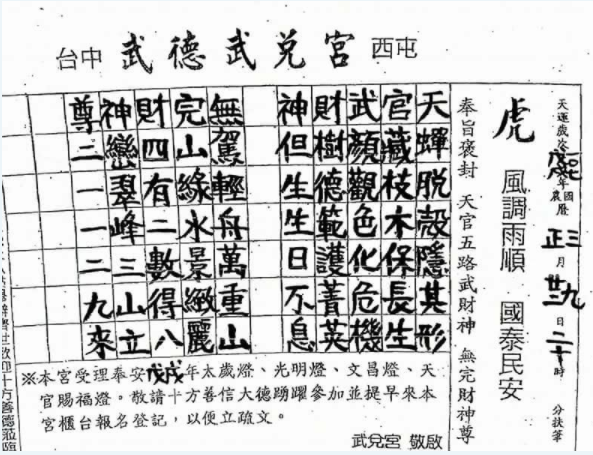 台中 武德武兌宮 西屯
天運歲次戊戌年國農曆正三月廿九日二十時 分扶筆
虎 風調雨順 國泰民安
奉旨褒封 天官五路武財神 無完財神尊
天蟬脫殼隱其形
官藏枝木保長生
武顏觀色化危機
財樹德範護菁英
神但生生日不息
無駕輕舟萬重山
完山綠水景緻麗
財四有二數得八
神巒翠峰三山立
尊二一一二九來
※本宮受理奉安戊戌年太歲燈、光明燈、文昌燈、天
官賜福燈。敬請十方善信大德踴躍參加並提早來本
宮櫃台報名登記，以便立疏文。
武兌宮 敬啟
濟世敬迎十方善德蒞臨